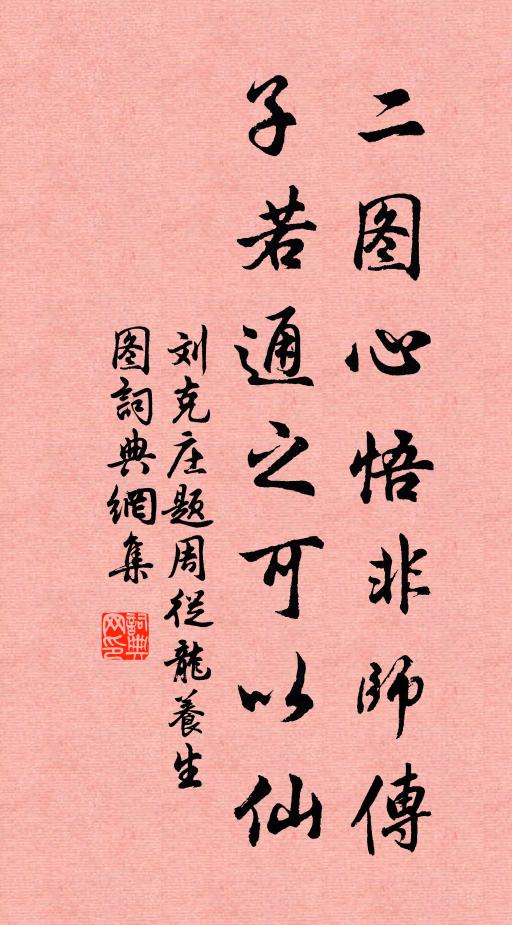 二图心悟非師傳
子若通之可以仙
刘克庄题周從龍養生
图詞典網集
詞典
网印